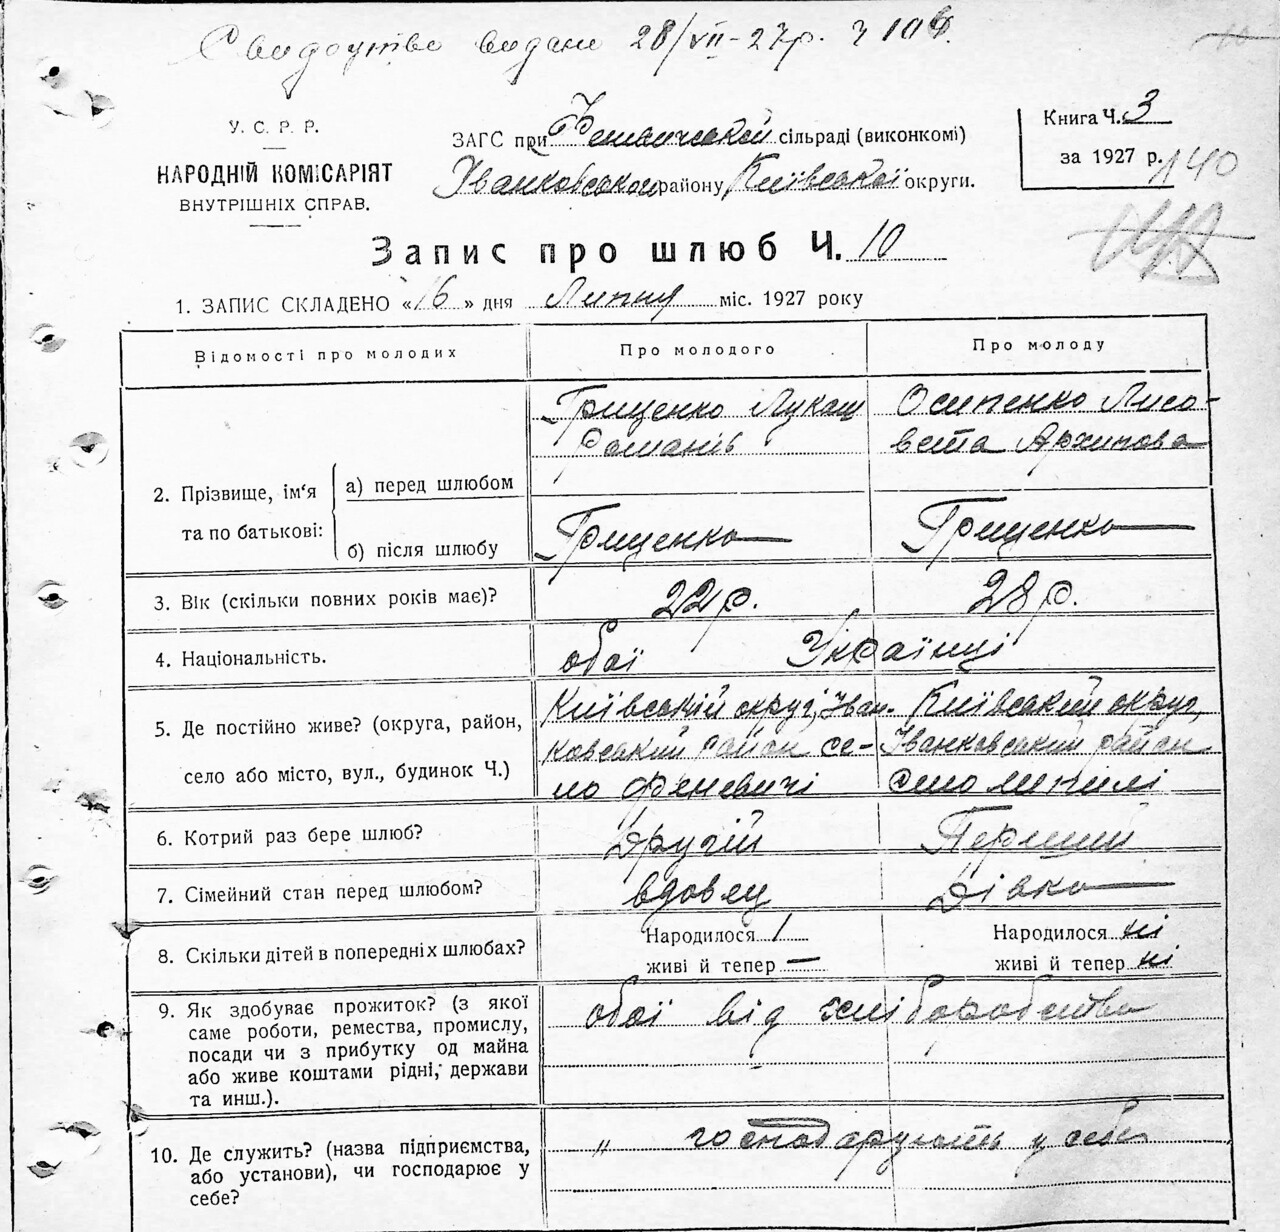 Свидоцтво видано 28/VII-27р. Ч 106.
У. С. Р. Р.
НАРОДНІЙ КОМІСАРІЯТ
ВНУТРІШНІХ СПРАВ.
ЗАГС при сільраді (виконкомі)
Іванковськом району Київської округи.
Книга Ч. 3
за 1927 р.
140
Запис про шлюб Ч. 10
1. ЗАПИС СКЛАДЕНО «16» дня Липня міс. 1927 року
Відомості про молодих
Про молодого
Про молоду
2. Прізвище, ім'я та по батькові:
а) перед шлюбом
Грищенко Лукаш
Романів
Осипенко Лисо-
вета Архипова
б) після шлюбу
Грищенко
Грищенко
3. Вік (скільки повних років має)?
22 р.
28 р.
4. Національність.
обої Українці
5. Де постійно живе? (округа, район,
село або місто, вул., будинок Ч.)
Київській округ, Іван-
ковський район се-
ло Феневичі
Київський округ,
Іванковський район
село
6. Котрий раз бере шлюб?
Другій
Перший
7. Сімейний стан перед шлюбом?
вдовец
Дівка
8. Скільки дітей в попередніх шлюбах?
Народилося 1
живі й тепер —
Народилося ні
живі й тепер ні
9. Як здобуває прожиток? (з якої
саме роботи, ремества, промислу,
посади чи з прибутку од майна
або живе коштами рідні, держави
та инш.).
обої від хліборобства
10. Де служить? (назва підприємства,
або установи), чи господарює у
себе?
„ господарують у себе